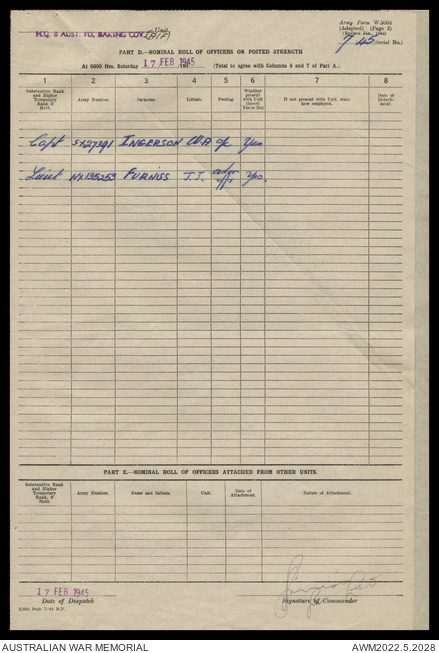 Army Form W.3008
(Adapted) (Page 2)
(Revised Jan., 1943)
H.Q. 8 AUST. FD. BAKING COY. (AIF) Unit
7/45 (Serial No.)
PART D.—NOMINAL ROLL OF OFFICERS ON POSTED STRENGTH
At 0600 Hrs. Saturday 17 FEB 1945 /194 (Total to agree with Columns 4 and 7 of Part A.)
1 2 3 4 5 6 7 8
Substantive Rank and Higher Temporary Rank if Held. Army Number. Surname. Initials. Posting. Whether present with Unit (Insert Yes or No) If not present with Unit, state how employed. Date of Detachment.
Capt SX27391 INGERSON W.A OC Yes
Lieut NX135253 FURNISS J.J. Yes.
PART E.—NOMINAL ROLL OF OFFICERS ATTACHED FROM OTHER UNITS.
Substantive Rank and Higher Temporary Rank, if Held. Army Number. Name and Initials. Unit. Date of Attachment. Nature of Attachment.
17 FEB 1945
Date of Despatch Signature of Commander
AUSTRALIAN WAR MEMORIAL AWM2022.5.2028